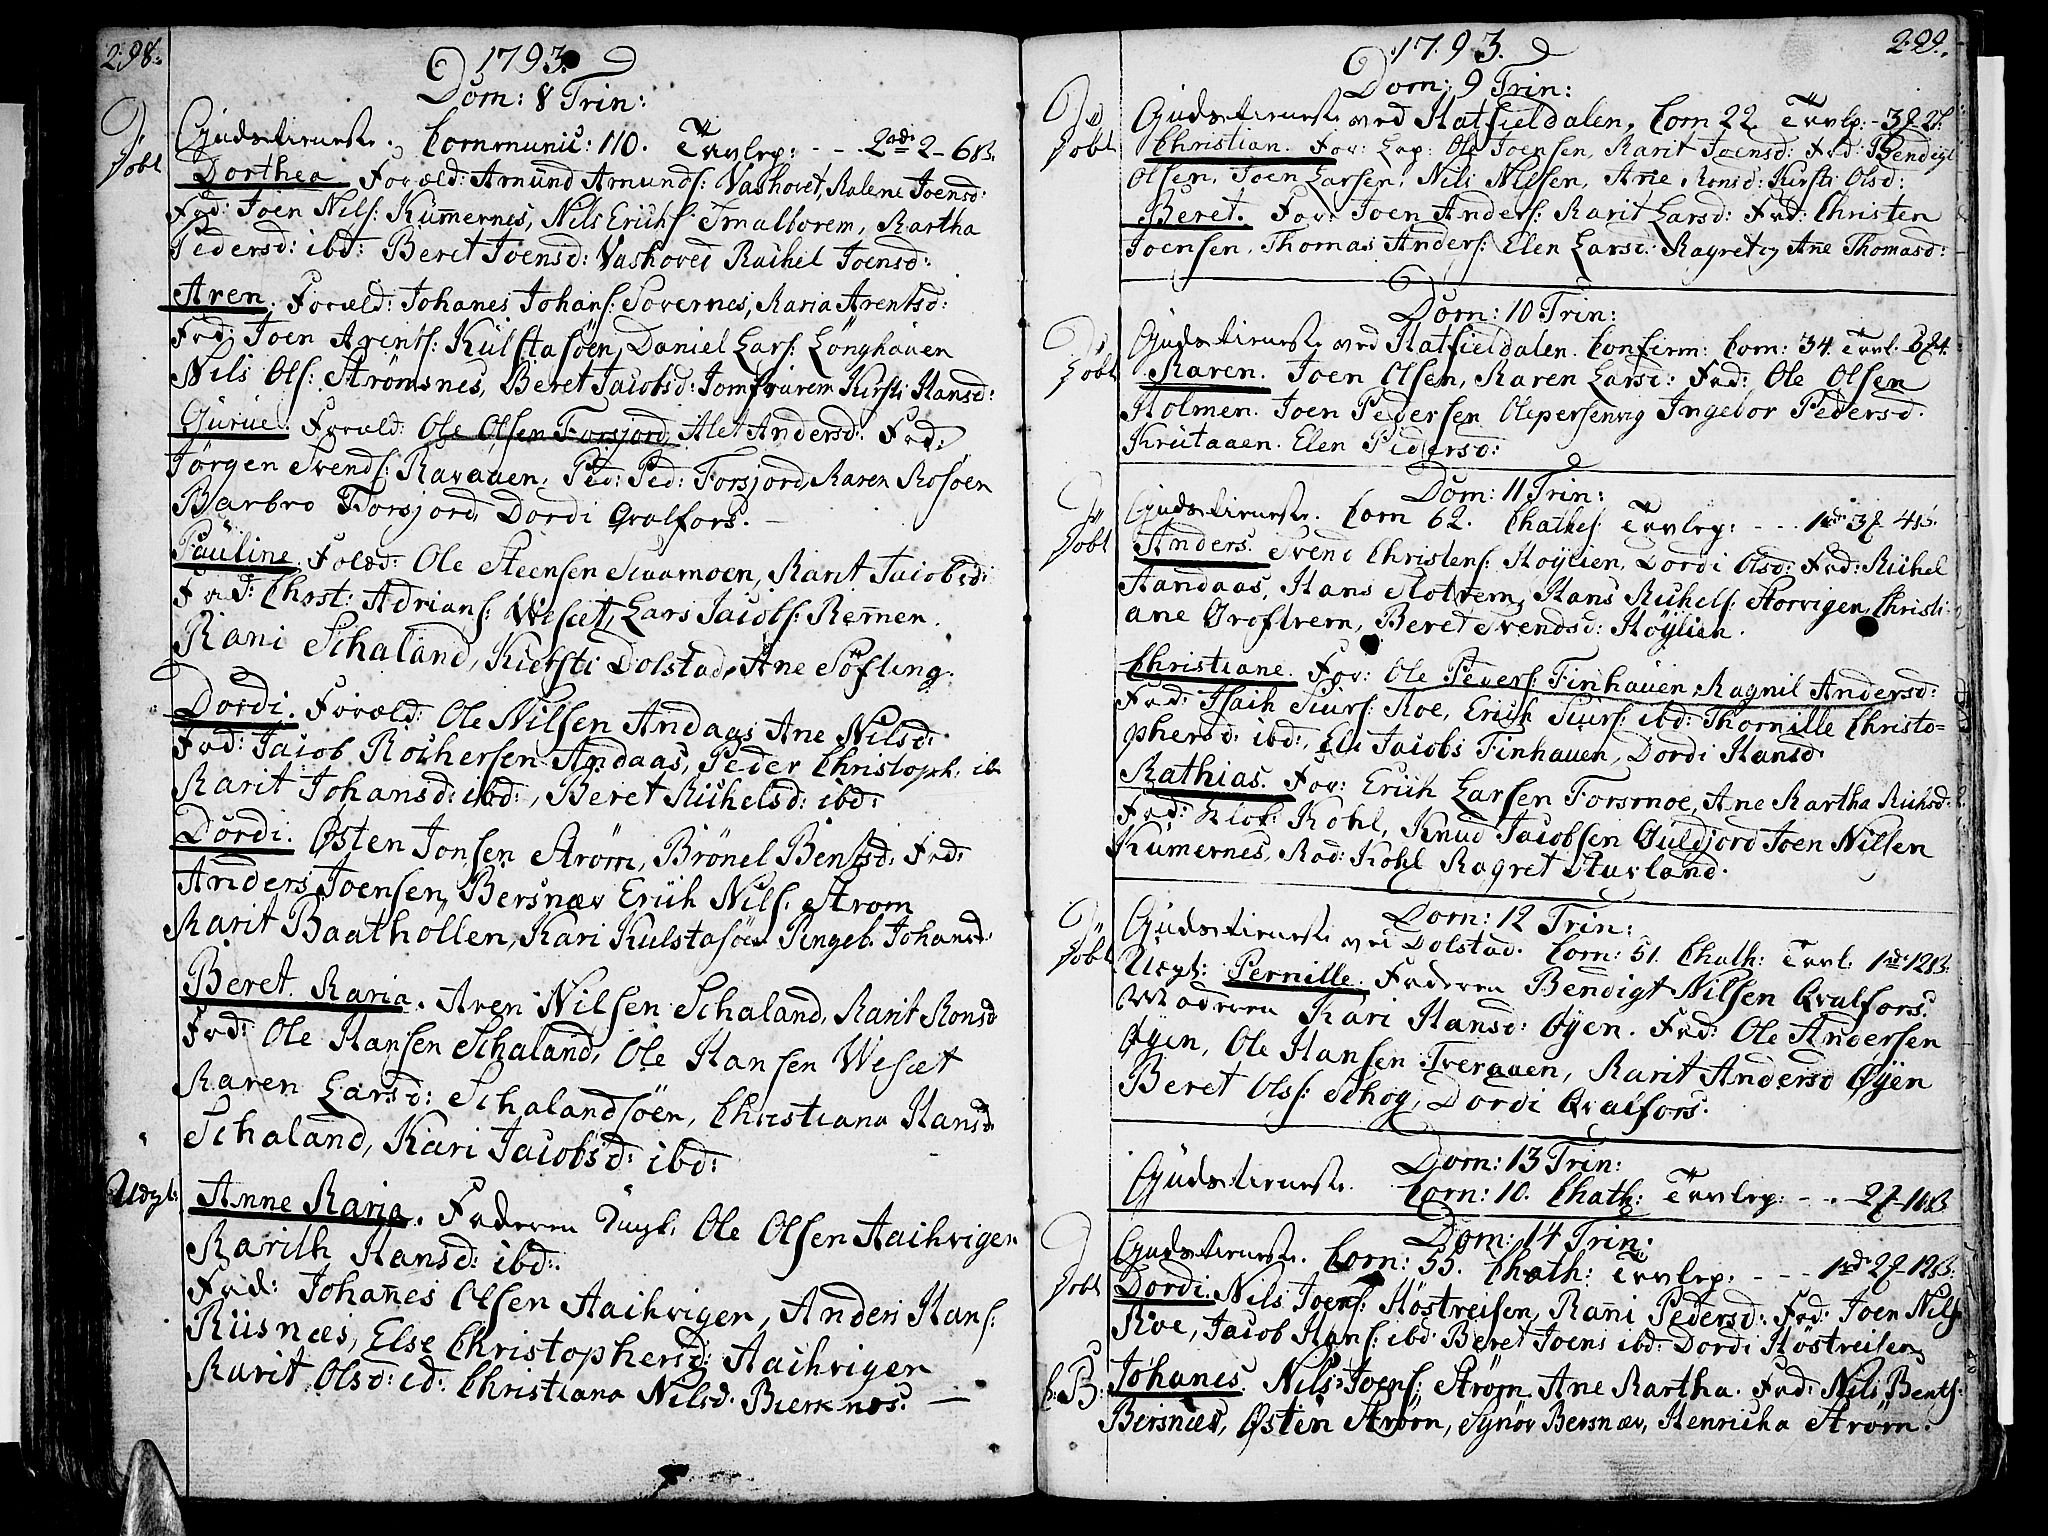 298.
1793.
Dom: 8 Trin:
Døbt
Gudstieneste, Communic: 110. Tavlep: - - - 2 2 - 6 ß.
Dorthea. Foræld: Amund Amunds: Vashovet, Malene Joensd:
Fad: Joen Nils: Kumernes, Nils Erichs: Smalborem, Martha
Pedersd: ibd: Beret Joensd: Vashoved Rachel Joensd:
Aren. Foræld: Johanes Johans: Sovernes, Maria Arentsd:
Fad: Joen Arents: Kulstasöen, Daniel Lars: Lönghauen
Nils Ols: Strömsnes, Beret Jacobsd: Jomfrurem Kirsti Hansd:
Gurue. Foræld: Ole Olsen Forsjord, Alet Andersd: Fad:
Jørgen Svends: Ravauen, Ped: Ped: Forsjord, Maren Rosöen
Barbro Forsjord, Dordi Qvalfors. -
Pauline. Foræld: Ole Steensen Scuamoen, Marit Jacobsd:
Fad: Christ: Adrians: Wesæt, Lars Jacobs: Remen.
Mani Schaland, Kiersti Dolstad, Ane Söfting.
Dordi. Foræld: Ole Nilsen Andaas Ane Nilsd:
Fad: Jacob Mochersen Andaas, Peder Christoph: ib
Marit Johansd: ibd:, Beret Michelsd: ibd:
Dordi. Østen Jonsen Strøm, Brönel Bentsd: Fad:
Anders Joensen, Bersnæv Erich Nils: Strøm
Marit Baathöllen, Kari Kulstasöen Ingeb: Johansd:
Beret Maria. Aren Nilsen Schaland, Marit Monsd
Fad: Ole Hansen Schaland, Ole Hansen Wesæt
Maren Larsd: Schalandsöen, Christiana Hansd
Schaland, Kari Jacobsd: ibd:
Uægt: Anne Maria. Faderen Ole Olsen Aaihvigen
Marith Hansd: ibd:
Fad: Johannes Olsen Aaihvigen, Anders Hans:
Riisnæs, Else Christophersd: Aaihvigen
Marit Olsd: id: Christiana Nilsd: Bierknes. -
299.
1793.
Dom: 9 Trin:
Døbt
Gudstieneste ved Hatfieldalen. Com 22 Tavlp: - 3
Christian. For: Ole Joensen, Marit Joensd: Fad: Bendigt
Olsen, Joen Larsen, Nils Nilsen, Ane Monsd: Kirsti Olsd:
Beret. For: Joen Anders: Marit Larsd: Fad: Christen
Joensen, Thomas Anders: Elen Larsd: Magret og Ane Thomasd:
Dom: 10 Trin:
Døbt
Gudstieneste ved Hatfieldalen. Confirm: Com: 34. Tavl.
Karen. Joen Olsen, Karen Larsd: Fad: Ole Olsen
Holmen. Joen Pedersen Olepersenvig Ingebor Pedersd:
Krutaaen. Elen Pedersd:
Dom: 11 Trin:
Døbt
Gudstieneste. Com 62. Chathes: Tavlep: - - - 1 3 4 ß.
Anders. Svend Christens: Høylien, Dordi Olsd: Fad: Michel
Aandaas, Hans Slotrem, Hans Michels: Storvigen, Christi-
ane Groftrem, Beret Svendsd: Høylien.
Christiane. For: Ole Peders: Finhauen, Magnil Andersd:
Fad: Isaih Siurs: Moe, Erich Siurs: ibd: Thornille Christo=
phersd: ibd:, Ele Jacobs Finhauen, Dordi Hansd:
Mathias. For: Erich Larsen Forsmoe, Ane Martha Michsd:
Fad: Klok: Kohl, Knud Jacobsen Guldjord Joen Nilsen
Kumernes, Mad: Kohl Magret Husland.
Dom: 12 Trin:
Døbt
Gudstieneste ved Dolstad. Com: 51. Chath: Tavl: 1 12 ß.
Uægt: Pernille. Faderen Bendigt Nilsen Qvalfors.
Moderen Kari Hansd: Øyen. Fad: Ole Andersen
Øyen, Ole Hansen Treraaen, Marit Andersd Øyen
Beret Ols: Schog, Dordi Qvalfors.
Dom: 13 Trin:
Gudstieneste. Com: 10. Chath: Tavlep: - - - 2 - 10 ß
Dom: 14 Trin:
Døbt
Gudstieneste. Com: 55. Chath: Tavlep: - - - 1 2 12 ß:
Dordi. Nils Joens: Höstreisen, Mani Pedersd: Fad: Joen Nils
Moe, Jacob Hans: ibd: Beret Joens ibd: Dordi Höstreisen
C: B: Johanes. Nils Joens: Strøm Ane Martha. Fad: Nils Bents:
Bersnæs, Østen Strøm, Synör Bersnæv, Henricha Strøm.